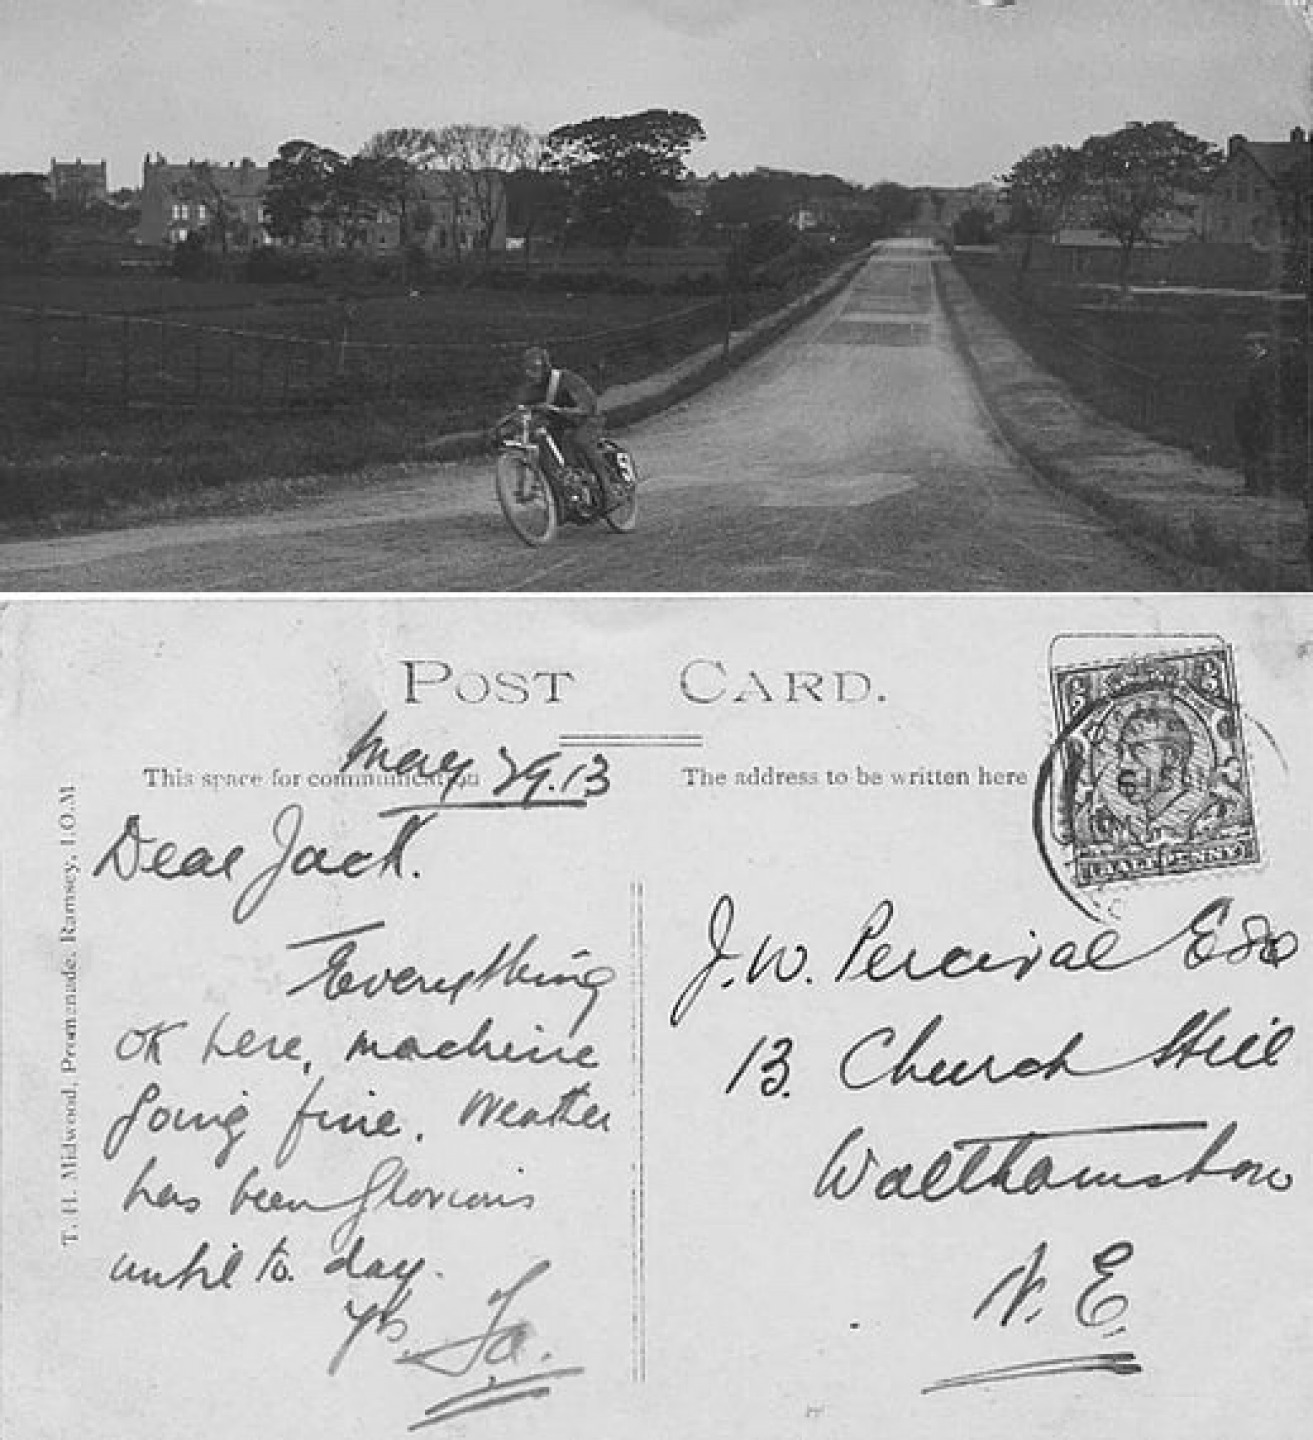 POST CARD.
This space for communication
The address to be written here
T. H. Midwood, Promenade, Ramsey, I.O.M.
May 29.13
Dear Jack.
Everything
OK here, machine
going fine. Weather
has been glorious
until to.day.
Yrs
J.W. Percival Esq
13. Church Hill
Walthamstow
N.E.
HALFPENNY